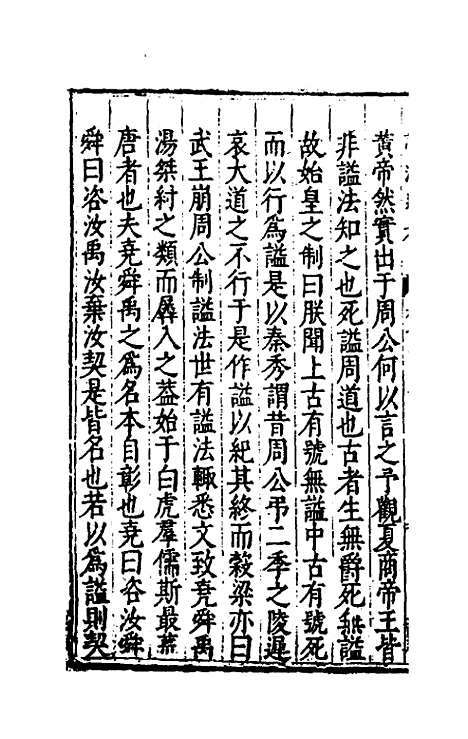 黃帝然實出于周公何以言之予觀夏商帝王皆
非謚法知之也死謚周道也古者生無爵死無謚
故始皇之制曰朕聞上古有號無謚中古有號死
而以行爲謚是以秦秀謂昔周公弔二季之陵遲
哀大道之不行于是作謚以紀其終而穀梁亦曰
武王崩周公制謚法世有謚法輙悉文致堯舜禹
湯桀紂之類而㝷入之葢始于白虎羣儒斯最蕪
唐者也夫堯舜禹之爲名本自彰也堯曰咨汝舜
舜曰咨汝禹汝棄汝契是皆名也若以爲謚則契